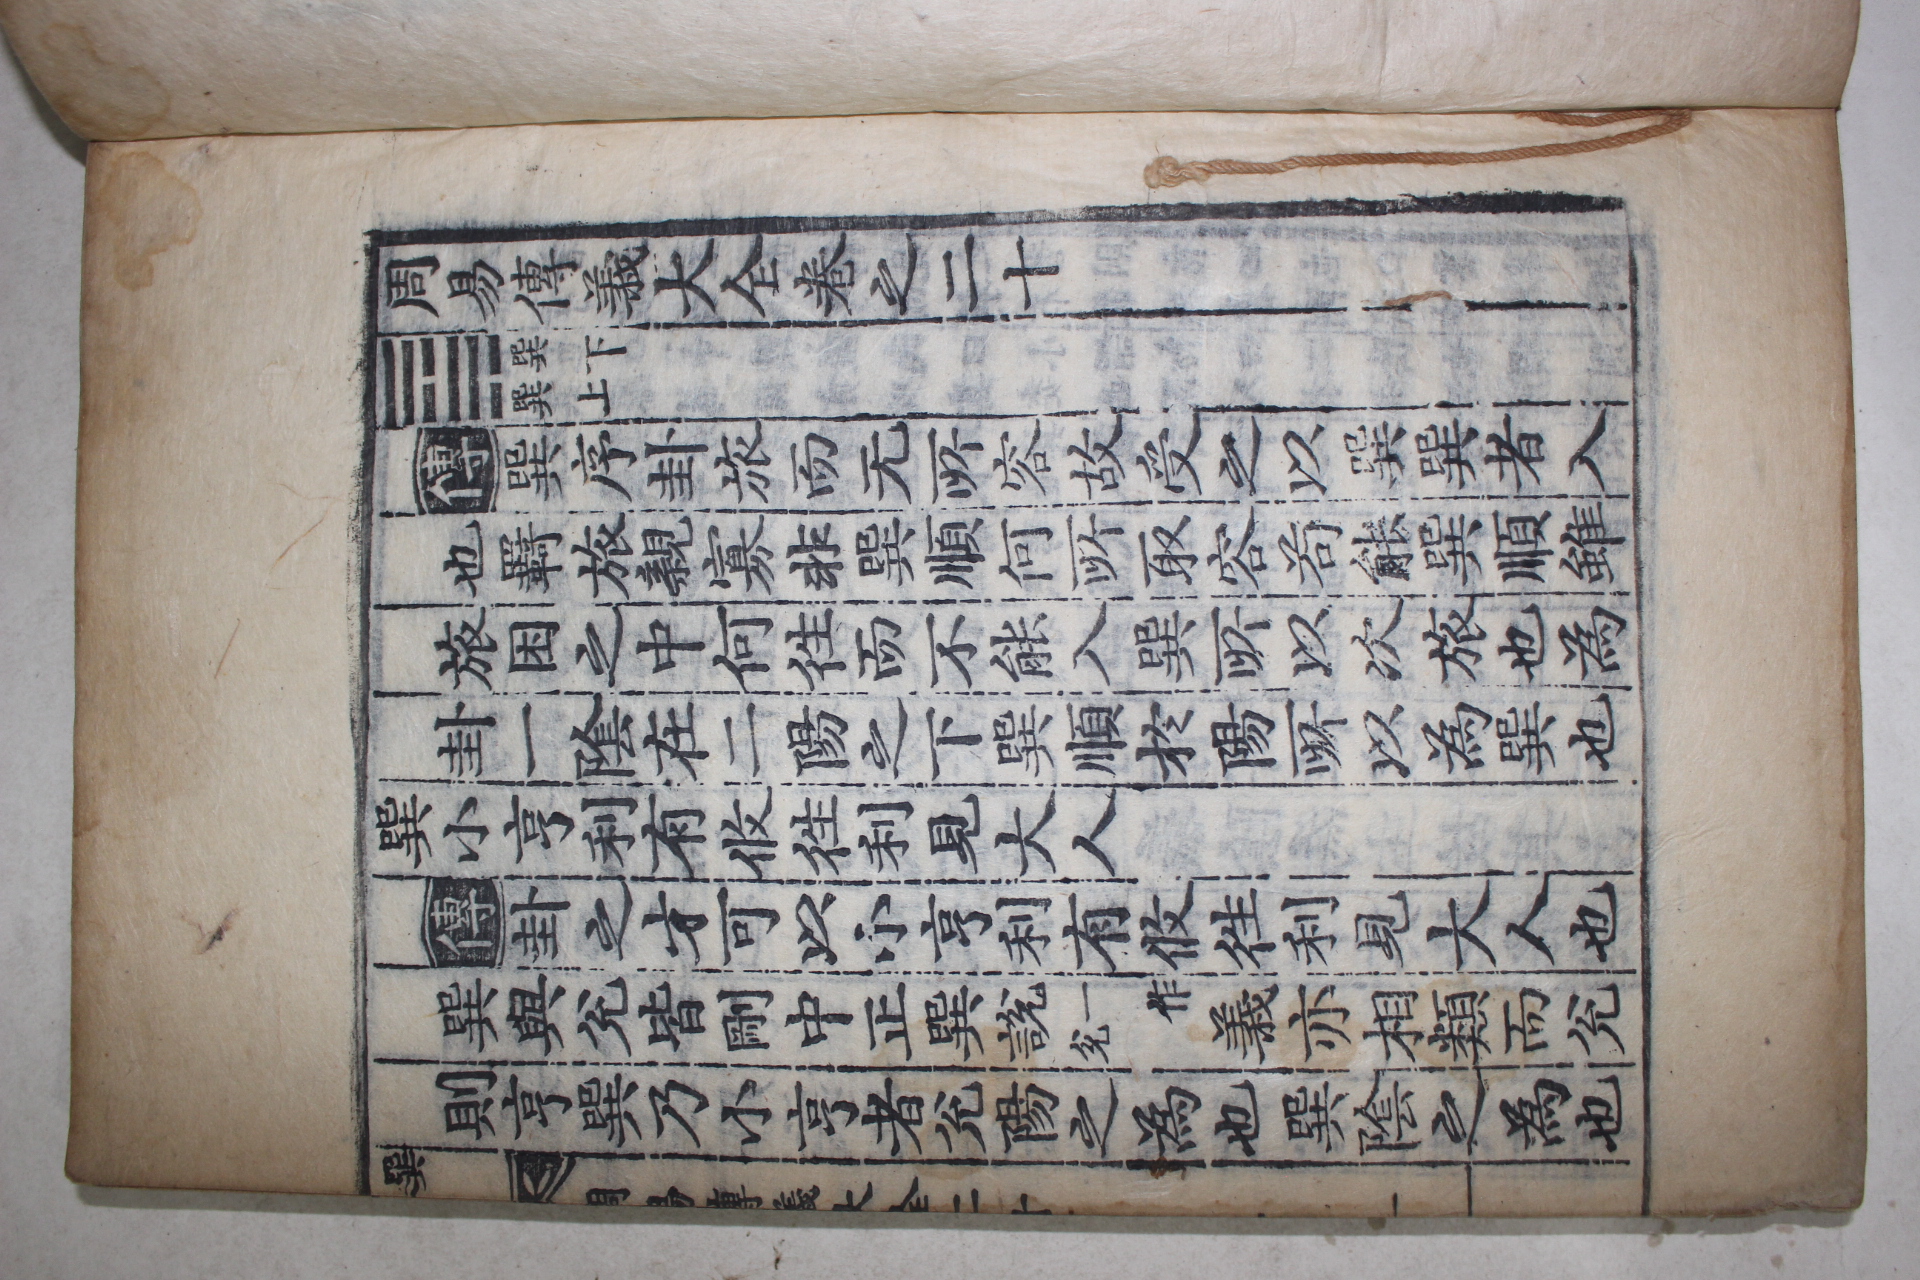 周易傳義大全卷之二十
巽下
巽上
傳巽序卦旅而无所容故受之以巽巽者入
也羇旅親寡非巽順何所取容苟能巽順雖
旅困之中何往而不能入巽所以次旅也為
卦一陰在二陽之下巽順於陽所以為巽也
巽小亨利有攸往利見大人
傳卦之才可以小亨利有攸往利見大人也
巽與兌皆剛中正巽說一作兌義亦相類而兌
則亨巽乃小亨者兌陽之為也巽陰之為也
巽
周易傳義大全二十 一